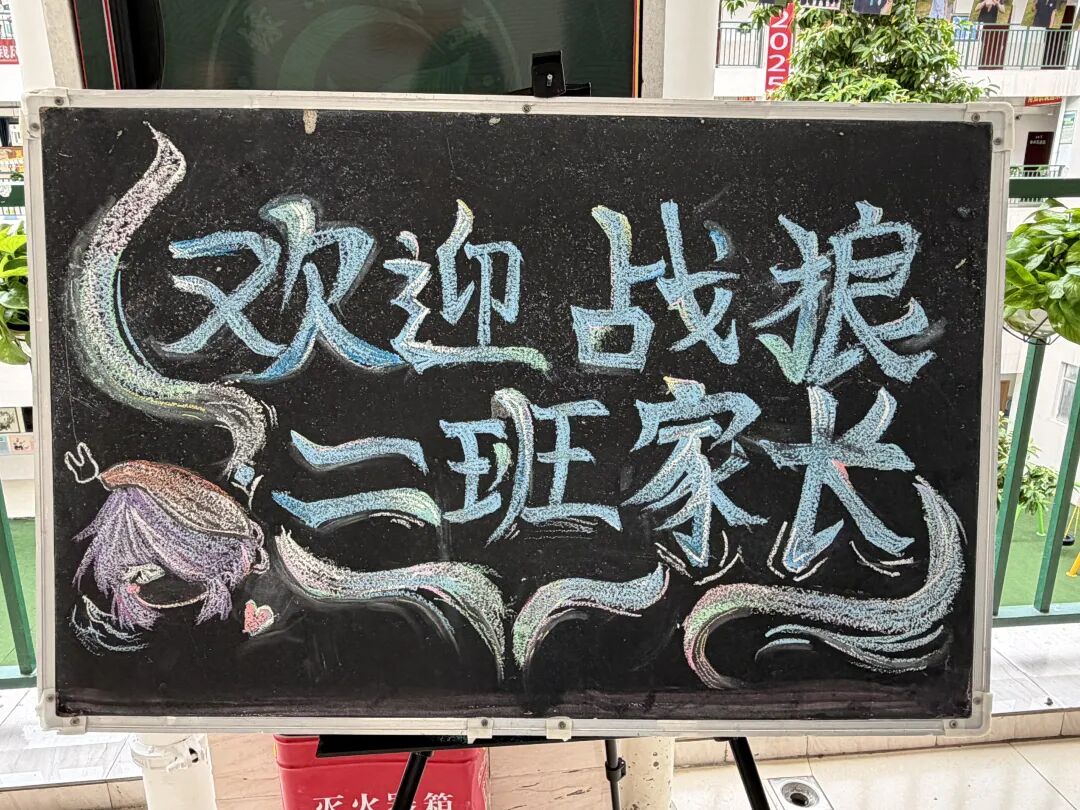 欢迎 战狼
二班家长
2025
灭火器箱